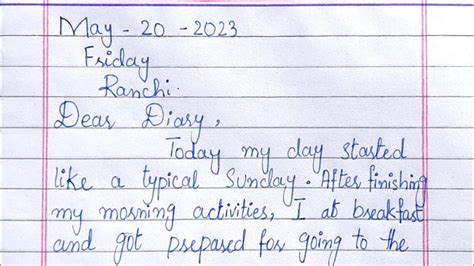 May - 20 - 2023
Friday
Ranchi.
Dear Diary,
Today my day started
like a typical Sunday. After finishing
my morning activities, I at breakfast
and got prepared for going to the